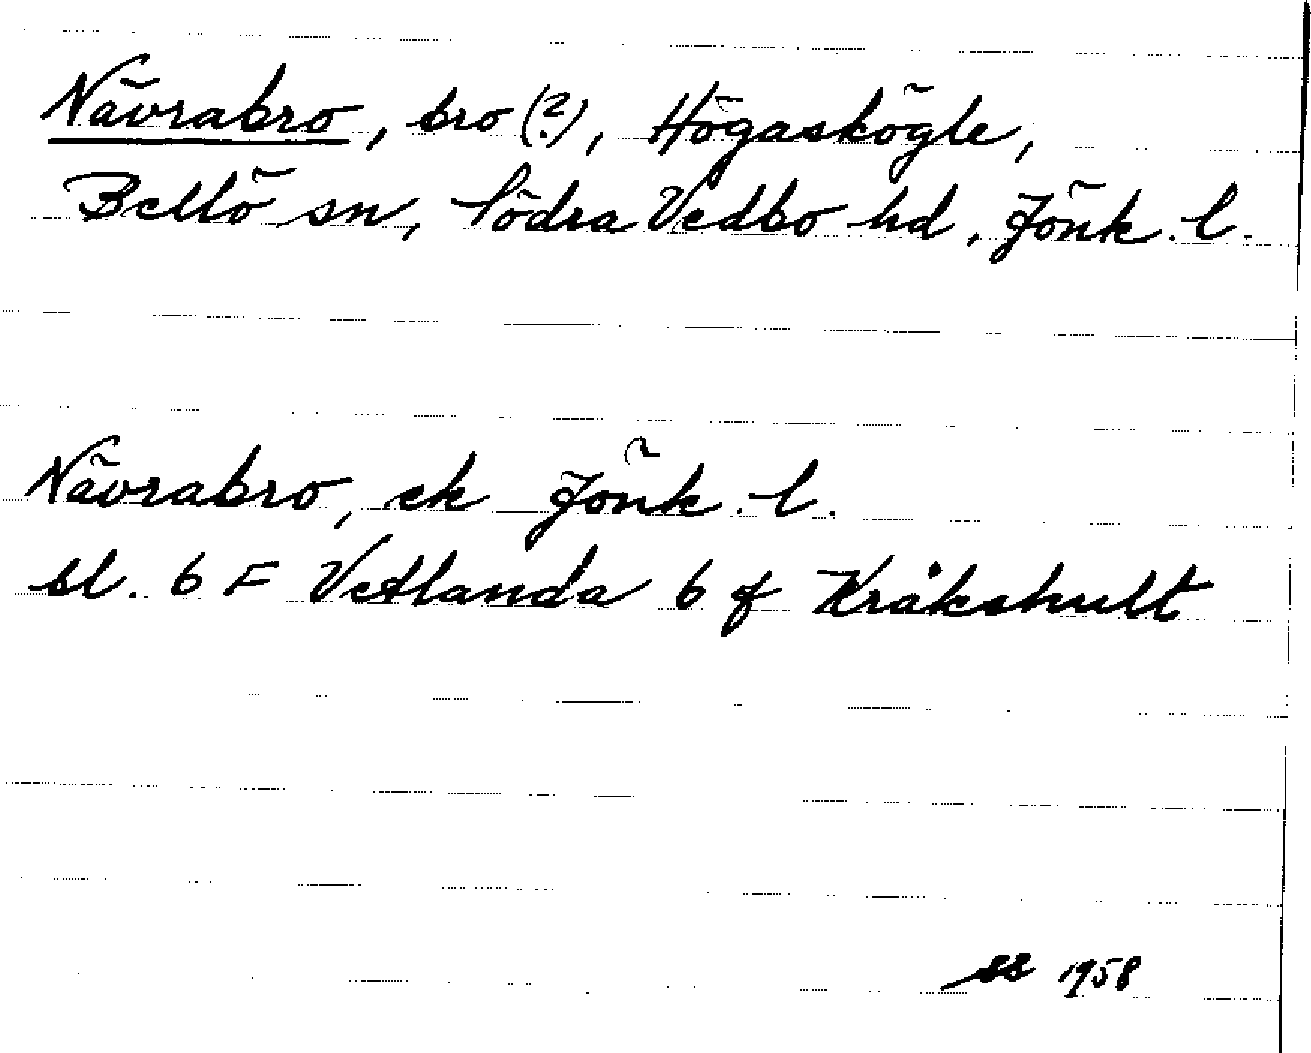 Nävrabro, bro (?), Högaskögle,
Bellö sn, Södra Vedbo hd, Jönk. l.
Nävrabro, ek Jönk. l.
bl. 6 F Vetlanda 6 f Kråkshult
1958